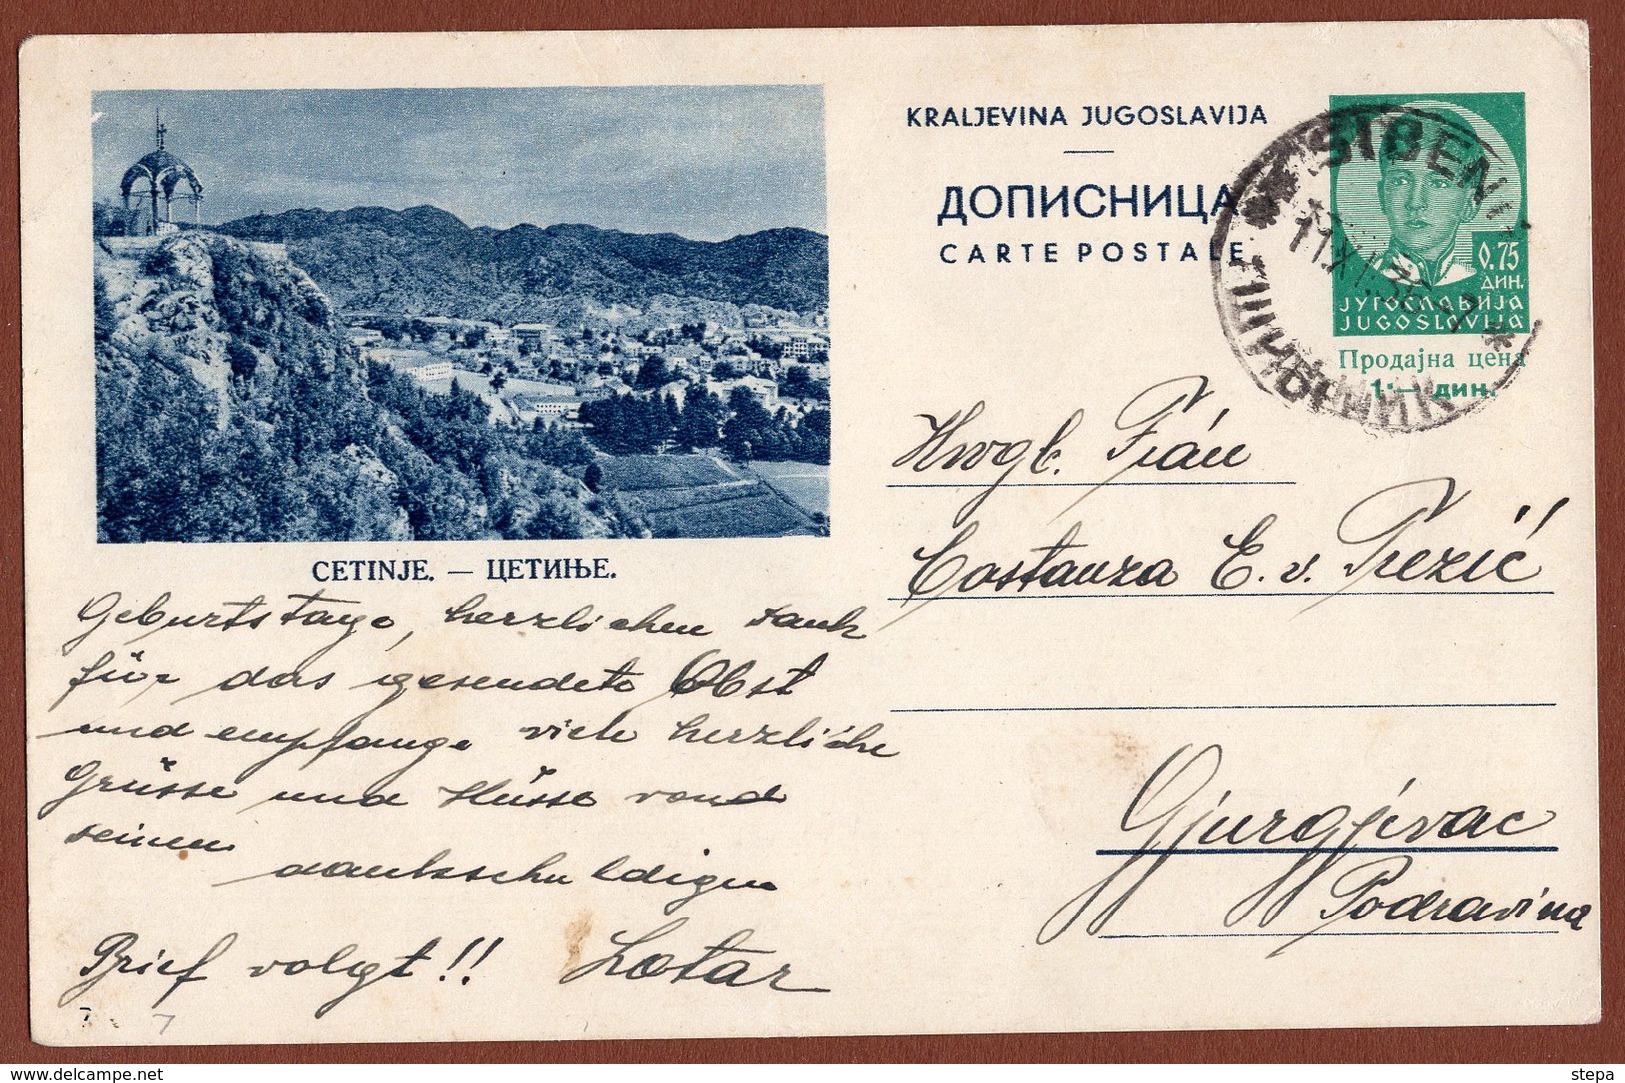 KRALJEVINA JUGOSLAVIJA
ДОПИСНИЦА
CARTE POSTALE
ŠIBENIK
0.75
ДИН.
ЈУГОСЛАВИЈА
JUGOSLAVIJA
Продајна цена
1·— дин.
CETINJE. — ЦЕТИЊЕ.
Geburtstage, herzlichen Dank
für das gesendete Obst
und empfange viele herzliche
Grüsse und Küsse von
seinem
dankschuldigen
Brief volgt!! Lotar
7 7
Frau
Costanza E. v. Trezić
Gjurgjevac
Podravina
stepa